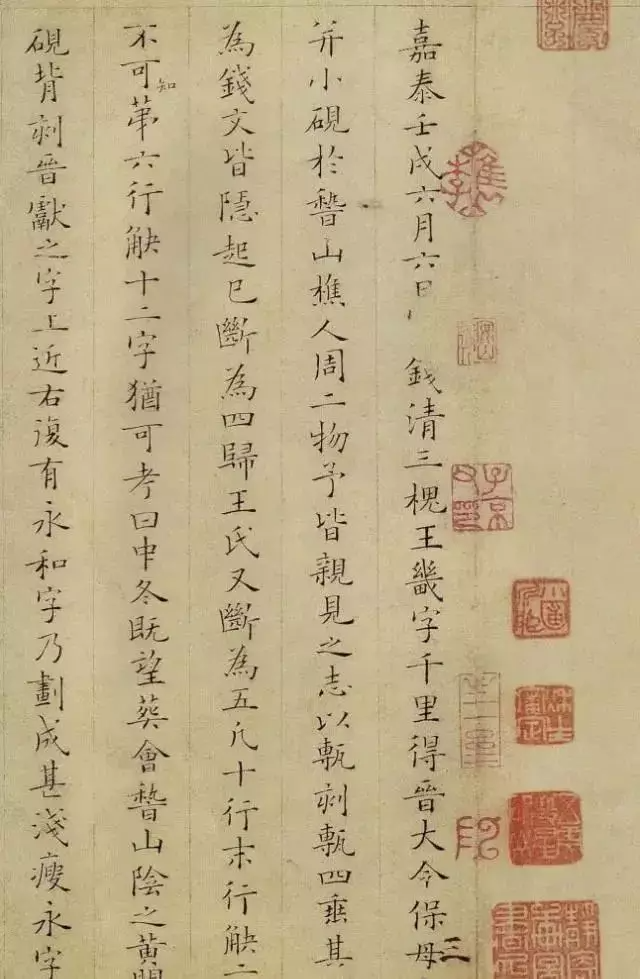 嘉泰壬戌六月六日錢清三槐王畿字千里得晉大令保母
并小硯於稽山樵人周二物予皆親見之志以甎刻甎四垂其
為錢文皆隱起已斷為四歸王氏又斷為五凡十行末行觖二
不可知第六行觖十二字猶可考曰中冬既望葬會稽山陰之黃
硯背刻晉獻之字上近右復有永和字乃劃成甚淺瘦永字
三
子京父印